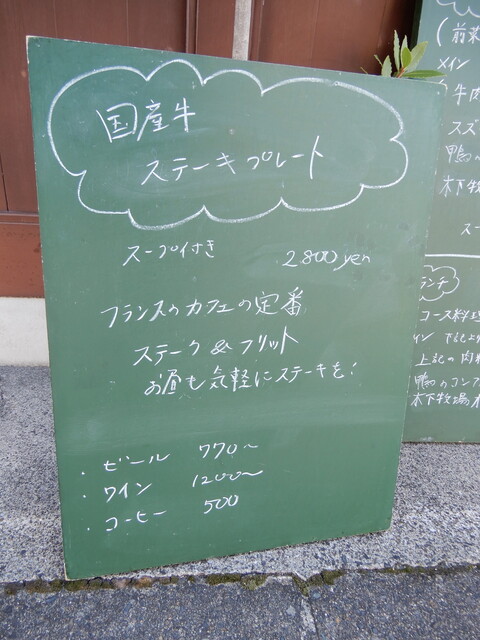 国産牛
ステーキプレート
スープ付き 2800yen
フランスのカフェの定番
ステーク&フリット
お昼も気軽にステーキを!
・ビール 770〜
・ワイン 1200〜
・コーヒー 500
(前菜
メイン
牛肉
スズ
鴨の
木下牧
スー
ランチ
コース料理
イン 下記より
上記の肉料
鴨のコンフ
木下牧場